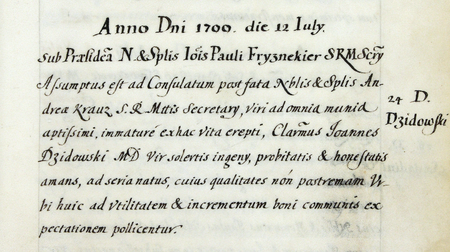 Anno Dni 1700. die 12 July.
Sub Præsidēa N. & Splis Ioīs Pauli Fryznekier SRM Scry
Assumptus est ad Consulatum post fata Nblis & Splis An-
dreæ Krauz S.R. Mttis Secretary, viri ad omnia munia
aptissimi, immaturè ex hac vita erepti, Clarmus Ioannes
Dzidowski MD Vir solertis ingeny, probitatis & honestatis
amans, ad seria natus, cuius qualitates nōn postremam Vr
bi huic ad Vtilitatem & incrementum boni communis ex
pectationem pollicentur.
24 D.
Dzidowski